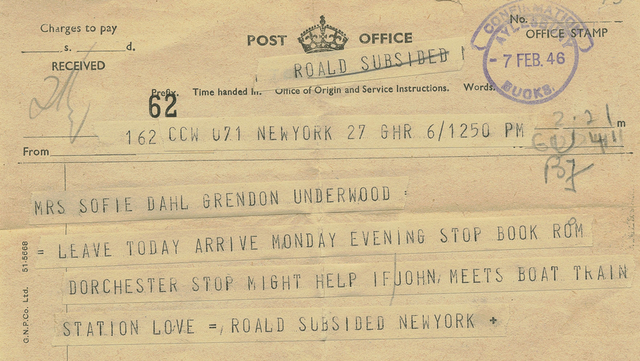 Charges to pay
s. d.
RECEIVED
POST OFFICE
No.
OFFICE STAMP
CONFIRMATION
AYLESBURY
- 7 FEB. 46
BUCKS.
ROALD SUBSIDED
Prefix. Time handed in. Office of Origin and Service Instructions. Words.
62
162 CCW U71 NEWYORK 27 GHR 6/1250 PM
2.21 m
From
MRS SOFIE DAHL GRENDON UNDERWOOD =
= LEAVE TODAY ARRIVE MONDAY EVENING STOP BOOK ROM
DORCHESTER STOP MIGHT HELP IF JOHN MEETS BOAT TRAIN
STATION LOVE = ROALD SUBSIDED NEWYORK +
G.N.P.Co. Ltd. 51-5668